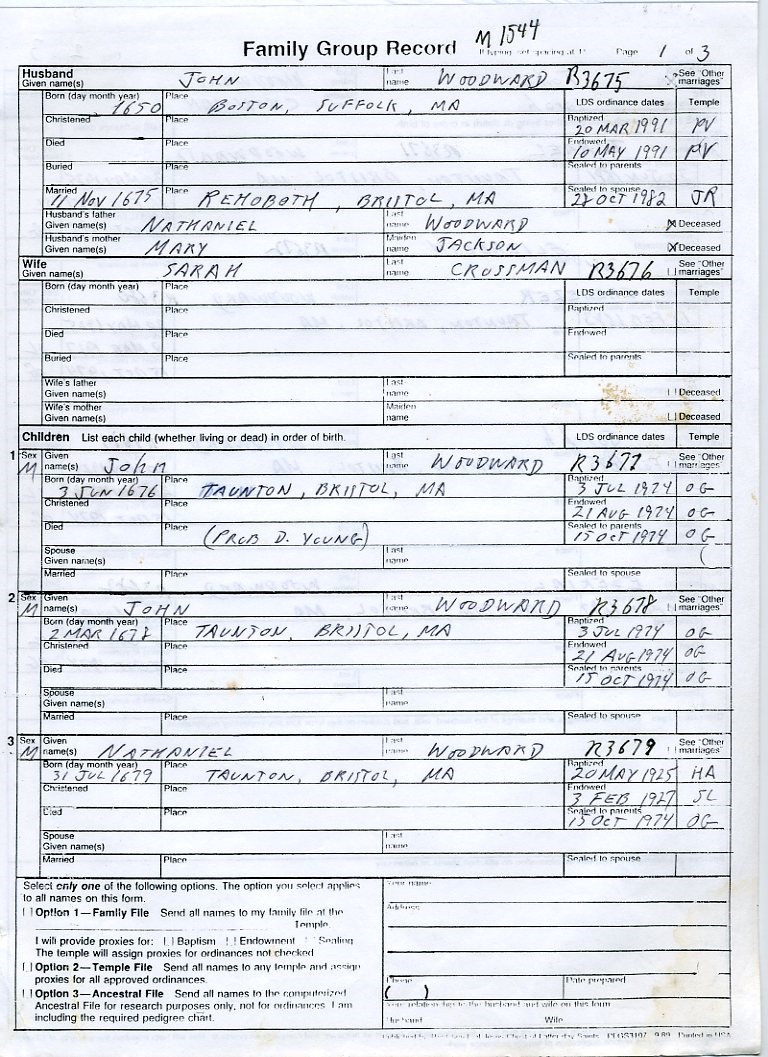 M 1544
Family Group Record
Page 1 of 3
Husband
Given name(s) JOHN Last name WOODWARD R3675 See "Other marriages"
Born (day month year) 1650 Place BOSTON, SUFFOLK, MA LDS ordinance dates Temple
Christened Place Baptized 20 MAR 1991 PV
Died Place Endowed 10 MAY 1991 PV
Buried Place Sealed to parents
Married 11 NOV 1675 Place REHOBOTH, BRISTOL, MA Sealed to spouse OCT 1982 JR
Husband's father Given name(s) NATHANIEL Last name WOODWARD [X] Deceased
Husband's mother Given name(s) MARY Maiden name JACKSON [X] Deceased
Wife
Given name(s) SARAH Last name CROSSMAN R3676 See "Other marriages"
Born (day month year) Place LDS ordinance dates Temple
Christened Place Baptized
Died Place Endowed
Buried Place Sealed to parents
Wife's father Given name(s) Last name [ ] Deceased
Wife's mother Given name(s) Maiden name [ ] Deceased
Children List each child (whether living or dead) in order of birth. LDS ordinance dates Temple
1 Sex M Given name(s) John Last name WOODWARD R3677 See "Other marriages"
Born (day month year) 3 JUN 1676 Place TAUNTON, BRISTOL, MA Baptized 3 JUL 1974 OG
Christened Place Endowed 21 AUG 1974 OG
Died Place (PROB D. YOUNG) Sealed to parents 15 OCT 1974 OG
Spouse Given name(s) Last name
Married Place Sealed to spouse
2 Sex M Given name(s) JOHN Last name WOODWARD R3678 See "Other marriages"
Born (day month year) 2 MAR 1678 Place TAUNTON, BRISTOL, MA Baptized 3 JUL 1974 OG
Christened Place Endowed 21 AUG 1974 OG
Died Place Sealed to parents 15 OCT 1974 OG
Spouse Given name(s) Last name
Married Place Sealed to spouse
3 Sex M Given name(s) NATHANIEL Last name WOODWARD R3679 See "Other marriages"
Born (day month year) 31 JUL 1679 Place TAUNTON, BRISTOL, MA Baptized 20 MAY 1925 HA
Christened Place Endowed 3 FEB 1927 SL
Died Place Sealed to parents 15 OCT 1974 OG
Spouse Given name(s) Last name
Married Place Sealed to spouse
Select only one of the following options. The option you select applies
to all names on this form.
[ ] Option 1—Family File Send all names to my family file at the
Temple.
I will provide proxies for: [ ] Baptism [ ] Endowment [ ] Sealing
The temple will assign proxies for ordinances not checked
[ ] Option 2—Temple File Send all names to any temple and assign
proxies for all approved ordinances.
[ ] Option 3—Ancestral File Send all names to the computerized
Ancestral File for research purposes only, not for ordinances. I am
including the required pedigree chart.
Your name
Address
Phone Date prepared
( )
Your relationship to the husband and wife on this form
Husband Wife
PFGS3107 9/89 Printed in USA